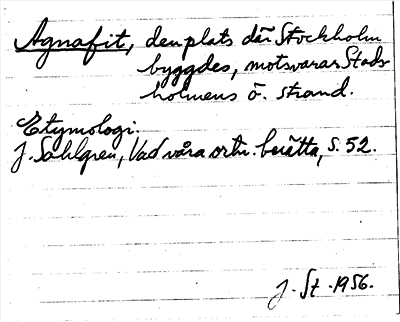 Agnafit, den plats där Stockholm
byggdes, motsvarar Stads-
holmens ö. strand.
Etymologi.
J. Sahlgren, Vad våra ortn. berätta, s. 52.
J. St. 1956.